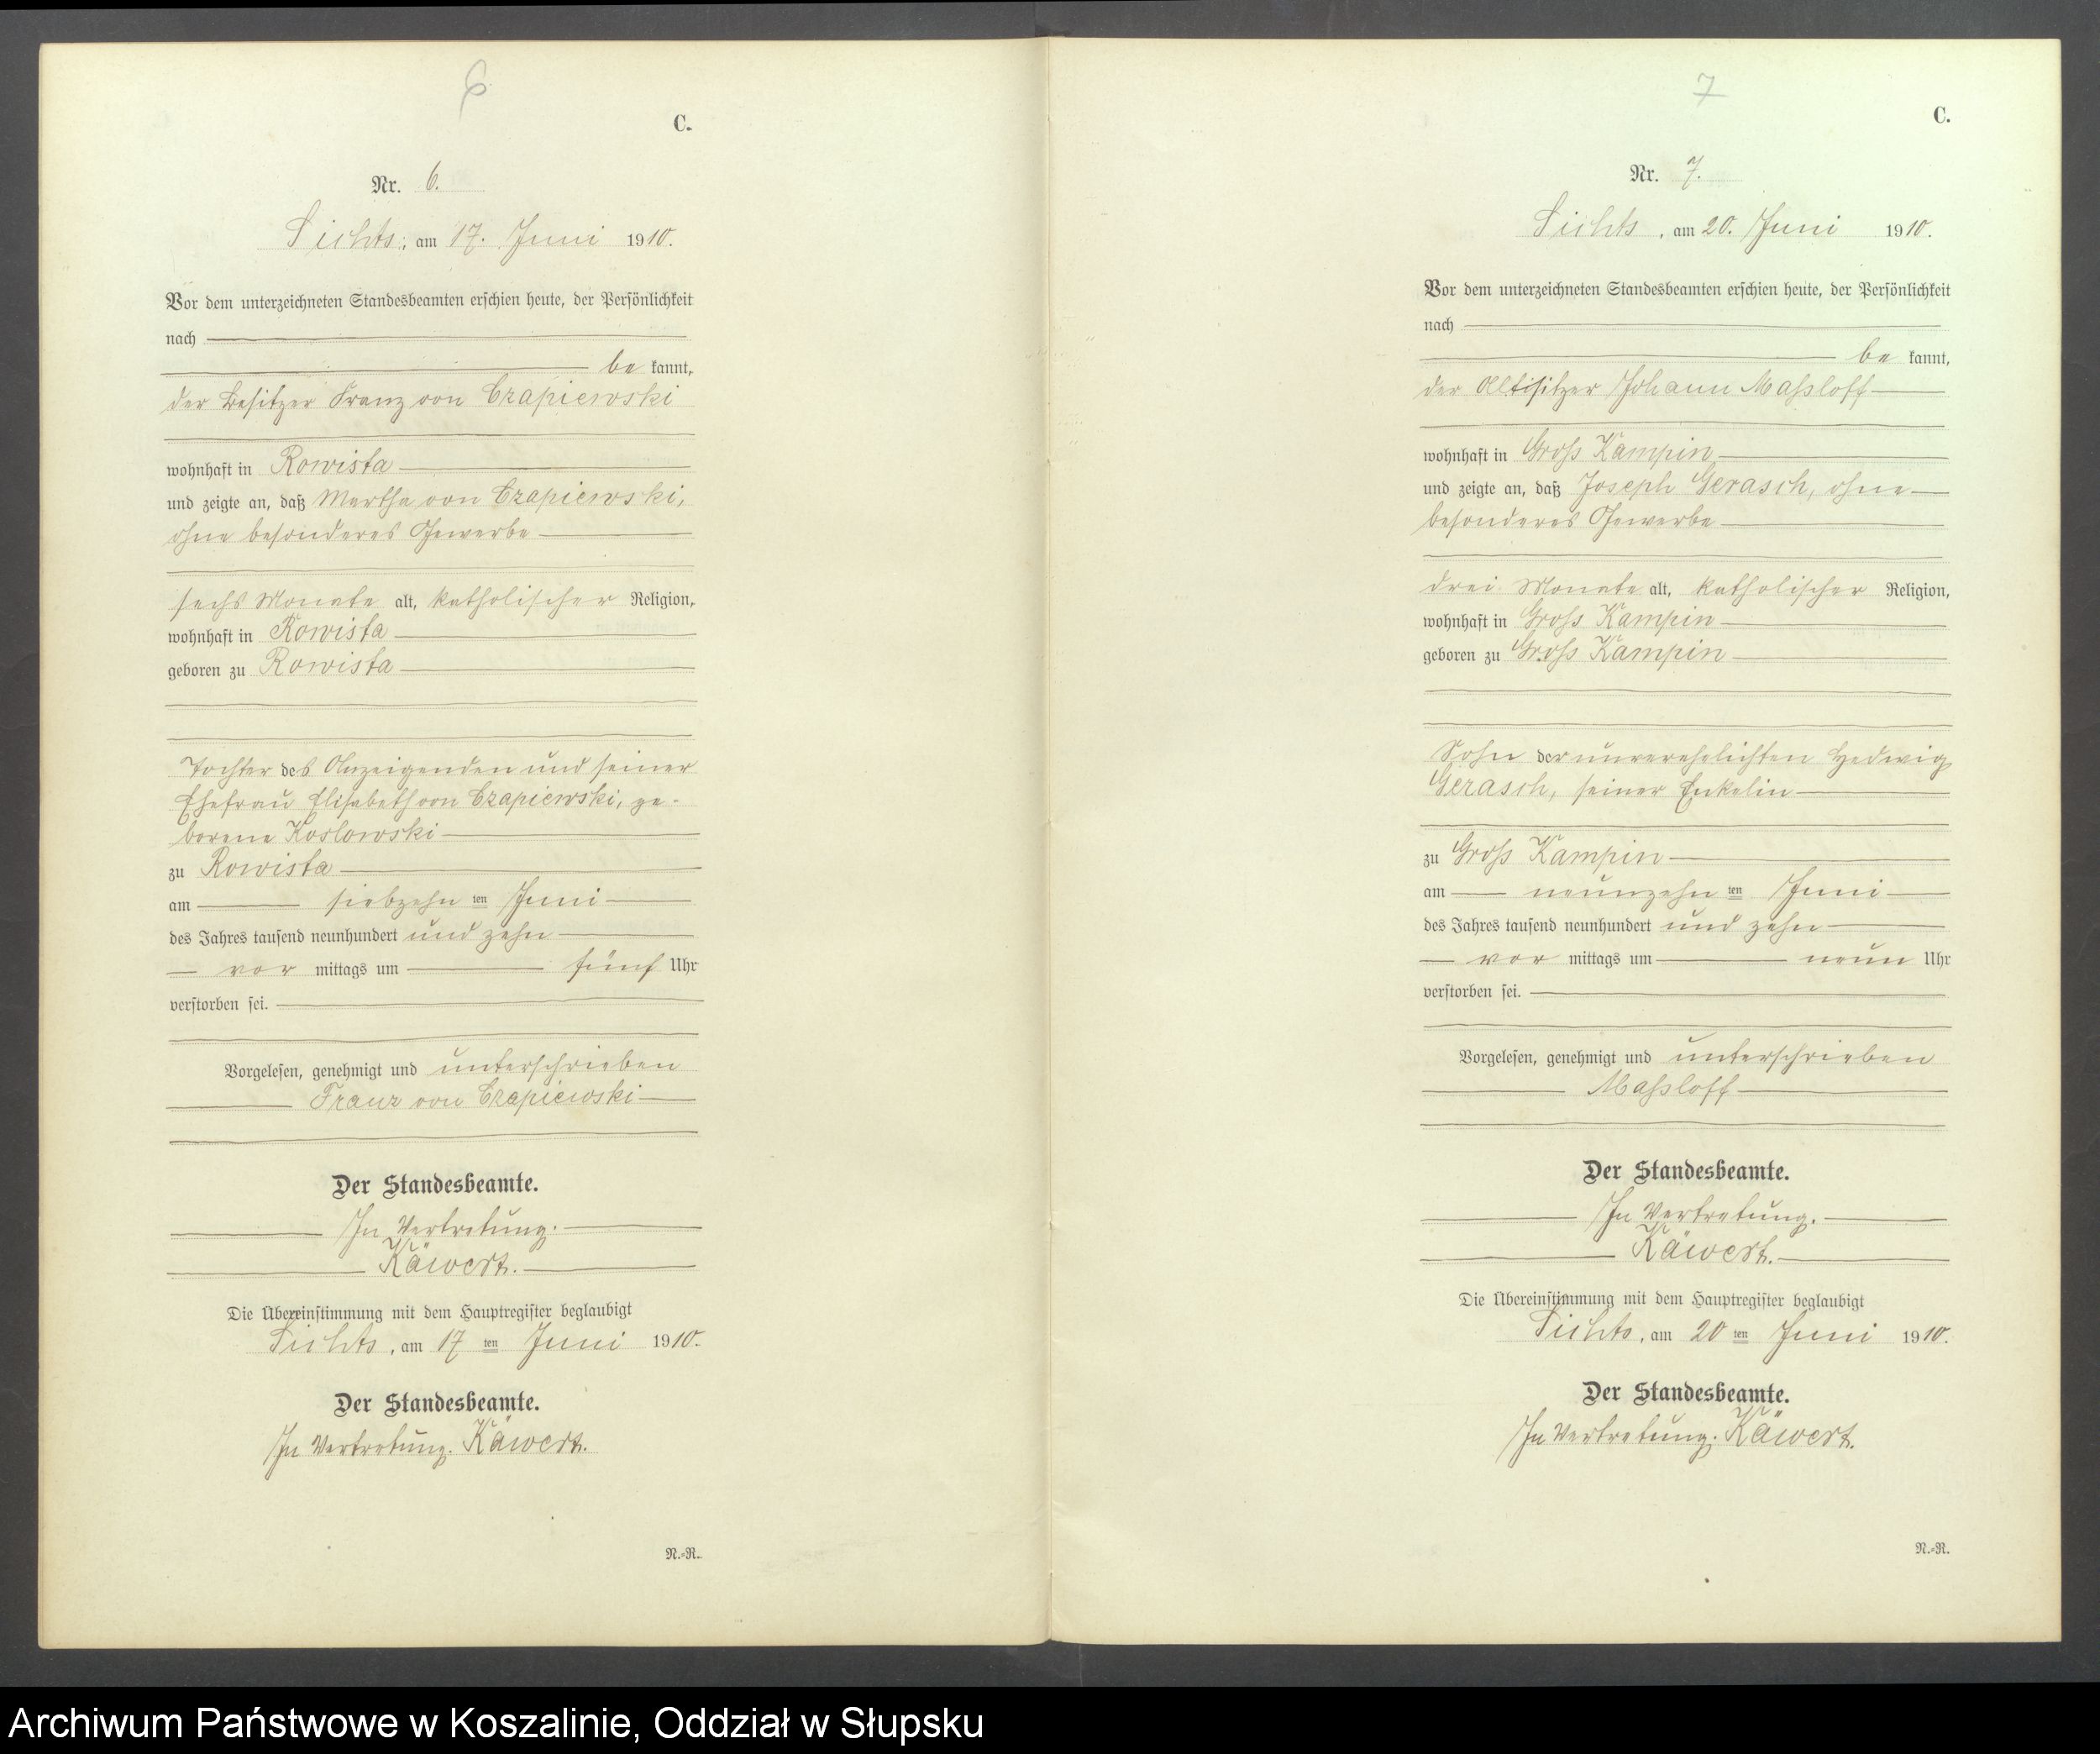 6
C.
Nr. 6.
Lichts, am 17. Juni 1910.
Vor dem unterzeichneten Standesbeamten erschien heute, der Persönlichkeit
nach
be kannt,
der Besitzer Franz von Czapiewski
wohnhaft in Rowista
und zeigte an, daß Martha von Czapiewski,
ohne besonderes Gewerbe
sechs Monate alt, katholischer Religion,
wohnhaft in Rowista
geboren zu Rowista
Tochter des Anzeigenden und seiner
Ehefrau Elisabeth von Czapiewski, ge-
borene Koslowski
zu Rowista
am siebzehn ten Juni
des Jahres tausend neunhundert und zehn
vor mittags um fünf Uhr
verstorben sei.
Vorgelesen, genehmigt und unterschrieben
Franz von Czapiewski
Der Standesbeamte.
In Vertretung.
Käwert.
Die Übereinstimmung mit dem Hauptregister beglaubigt
Lichts, am 17 ten Juni 1910.
Der Standesbeamte.
In Vertretung. Käwert.
N.-R.
7
C.
Nr. 7.
Lichts, am 20. Juni 1910.
Vor dem unterzeichneten Standesbeamten erschien heute, der Persönlichkeit
nach
be kannt,
der Altsitzer Johann Maßloff
wohnhaft in Groß Kampin
und zeigte an, daß Joseph Gerasch, ohne
besonderes Gewerbe
drei Monate alt, katholischer Religion,
wohnhaft in Groß Kampin
geboren zu Groß Kampin
Sohn der unverehelichten Hedwig
Gerasch, seiner Enkelin
zu Groß Kampin
am neunzehn ten Juni
des Jahres tausend neunhundert und zehn
vor mittags um neun Uhr
verstorben sei.
Vorgelesen, genehmigt und unterschrieben
Maßloff
Der Standesbeamte.
In Vertretung.
Käwert.
Die Übereinstimmung mit dem Hauptregister beglaubigt
Lichts, am 20 ten Juni 1910.
Der Standesbeamte.
In Vertretung. Käwert.
N.-R.
Archiwum Państwowe w Koszalinie, Oddział w Słupsku